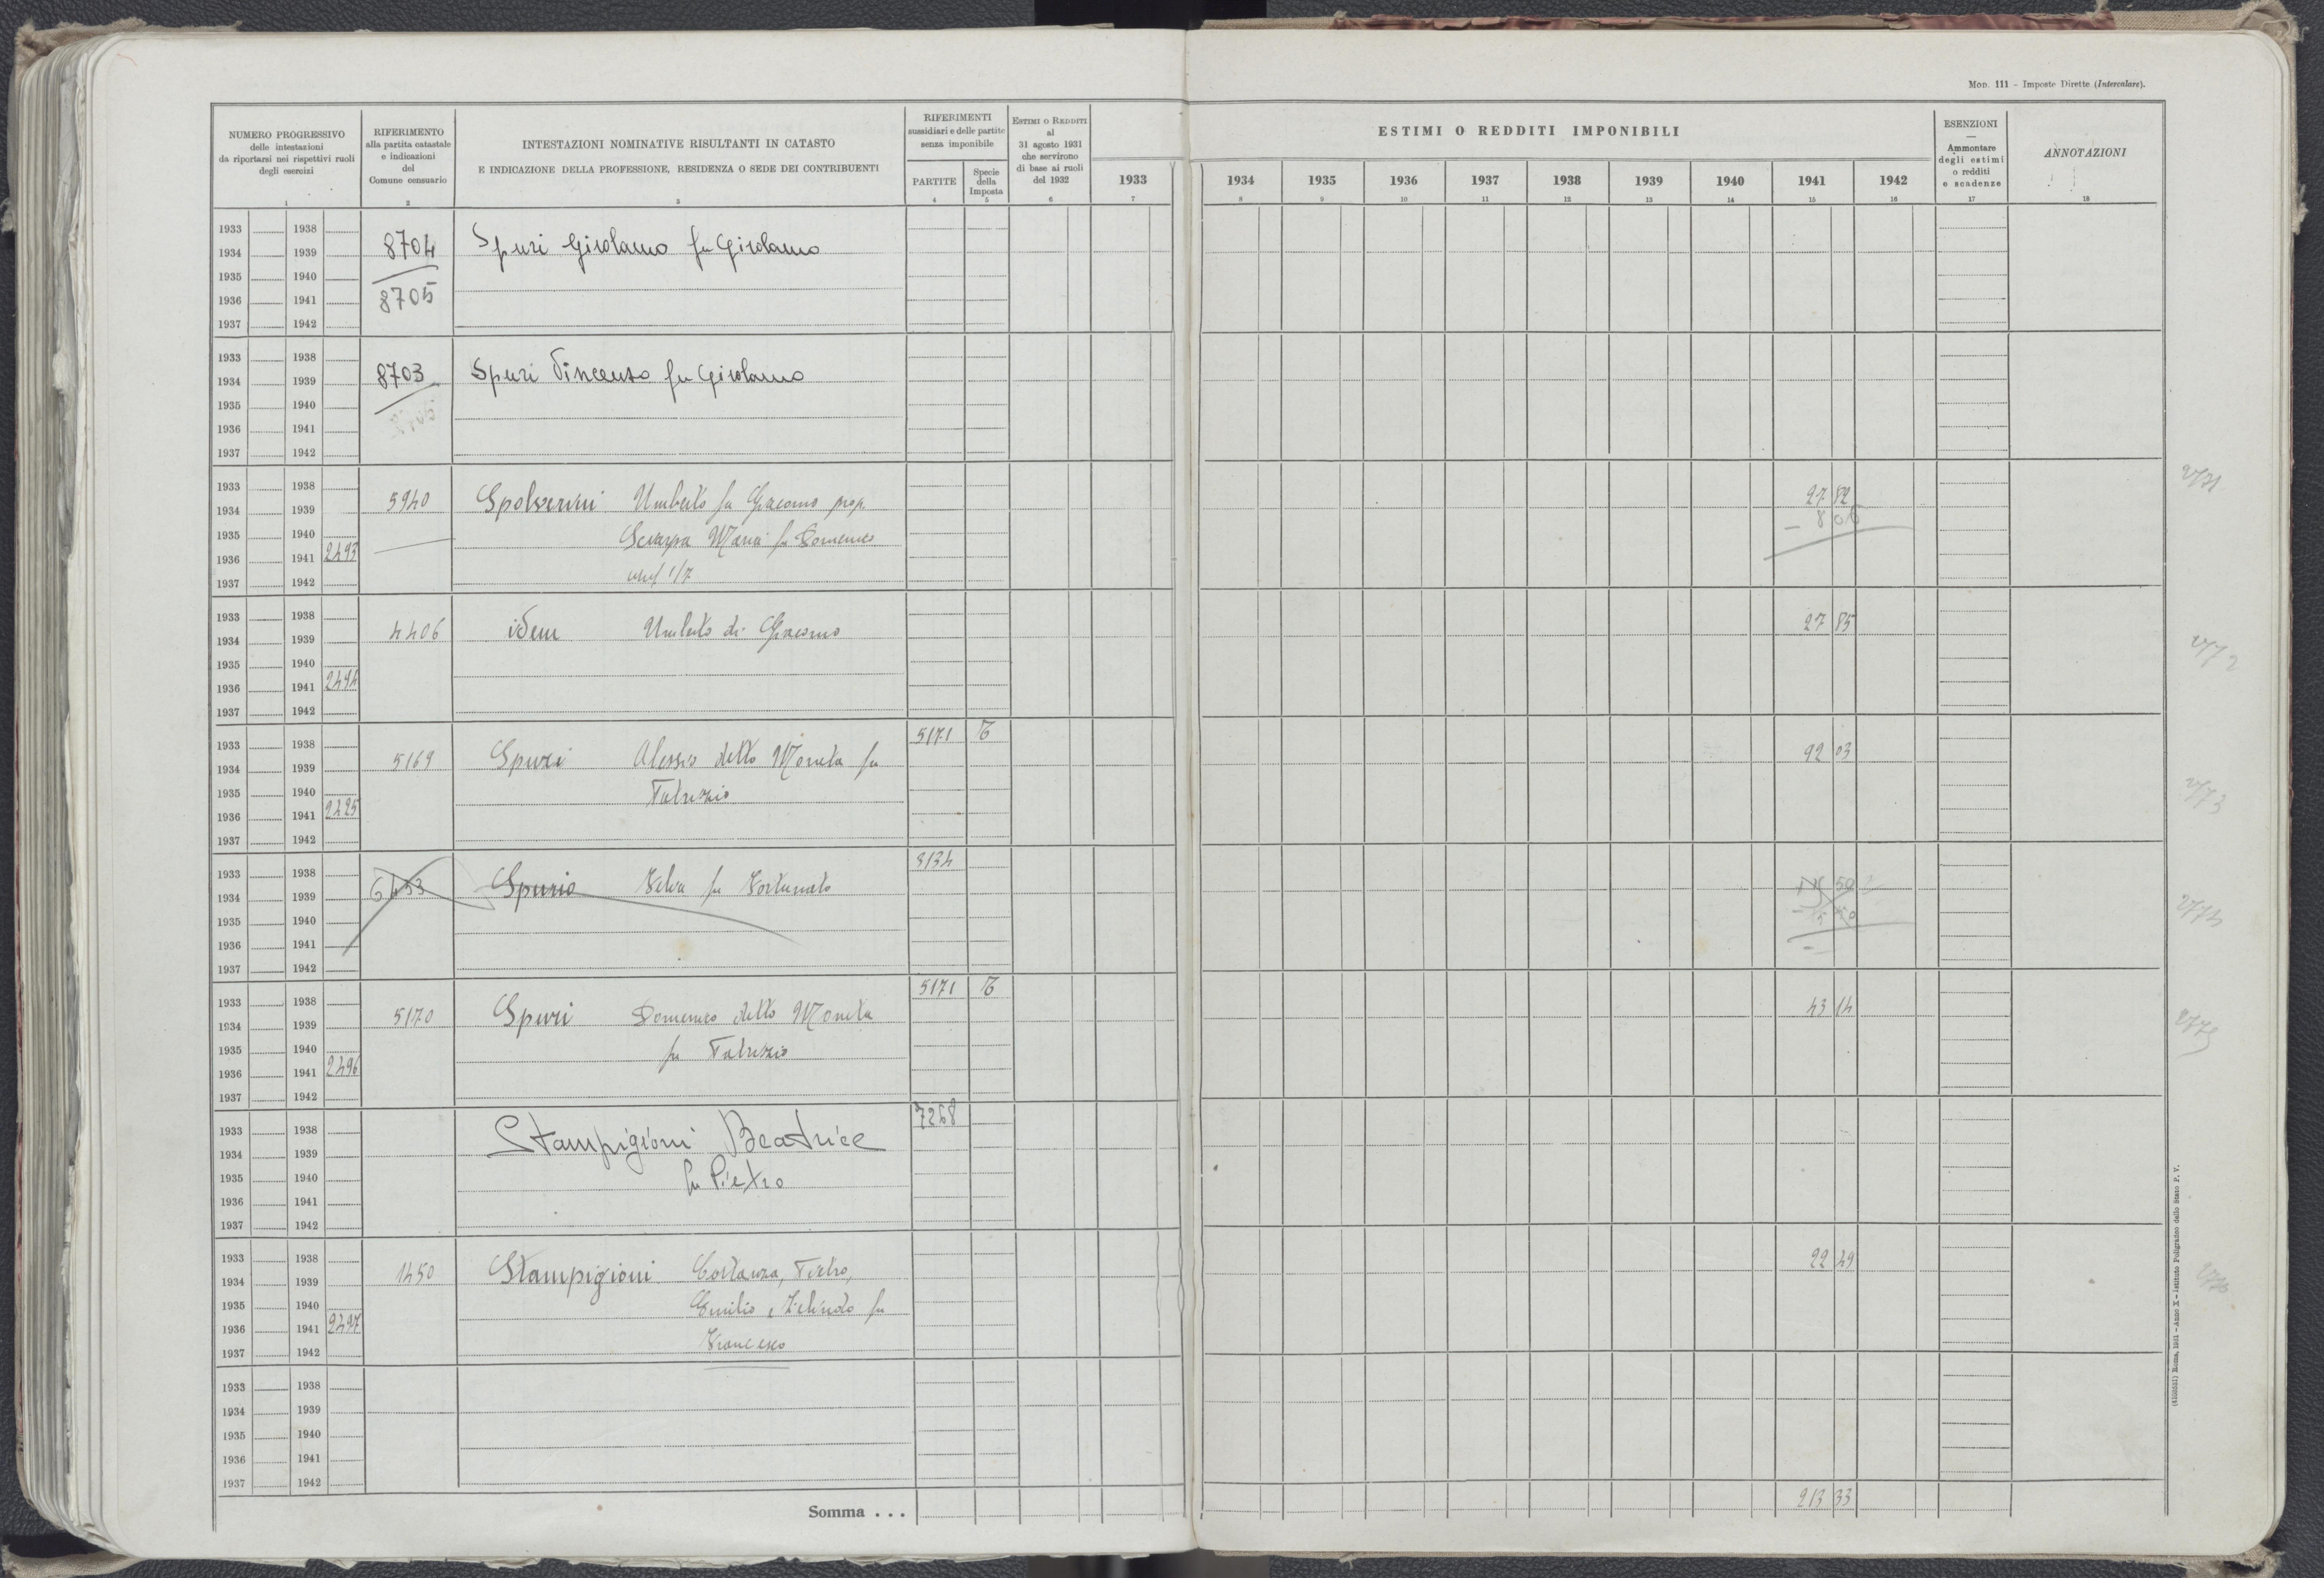 MOD. 111 - Imposte Dirette (Intercalare).
NUMERO PROGRESSIVO
delle intestazioni
da riportarsi nei rispettivi ruoli
degli esercizi
RIFERIMENTO
alla partita catastale
e indicazioni
del
Comune censuario
INTESTAZIONI NOMINATIVE RISULTANTI IN CATASTO
E INDICAZIONE DELLA PROFESSIONE, RESIDENZA O SEDE DEI CONTRIBUENTI
RIFERIMENTI
sussidiari e delle partite
senza imponibile
PARTITE
Specie
della
Imposta
ESTIMI O REDDITI
al
31 agosto 1931
che servirono
di base ai ruoli
del 1932
ESTIMI O REDDITI IMPONIBILI
1933 1934 1935 1936 1937 1938 1939 1940 1941 1942
ESENZIONI
—
Ammontare
degli estimi
o redditi
e scadenze
ANNOTAZIONI
1 2 3 4 5 6 7 8 9 10 11 12 13 14 15 16 17 18
1933 1938
1934 1939 8704 Spuri Girolamo fu Girolamo
1935 1940
1936 1941 8705
1937 1942
1933 1938
1934 1939 8703 Spuri Vincenzo fu Girolamo
1935 1940
1936 1941
1937 1942
1933 1938 2771
1934 1939 5940 Spolverini Umberto fu Giacomo prop. 27 82
1935 1940 Sciarpa Maria fu Domenico - 8 06
1936 1941 2493 usuf 1/7
1937 1942
1933 1938
1934 1939 4406 idem Umberto di Giacomo 27 85 2772
1935 1940
1936 1941 2494
1937 1942
1933 1938 5171 T
1934 1939 5169 Spuri Alessio detto Moneta fu 92 03
1935 1940 Patrizio 2773
1936 1941 2495
1937 1942
1933 1938 8134
1934 1939 6453 Spurio Velia fu Fortunato 50
1935 1940 2774
1936 1941
1937 1942
1933 1938 5171 T
1934 1939 5170 Spuri Domenico detto Moneta 43 14 2775
1935 1940 fu Patrizio
1936 1941 2496
1937 1942
1933 1938 7268
1934 1939 Stampigioni Beatrice
1935 1940 fu Pietro
1936 1941
1937 1942
1933 1938
1934 1939 1450 Stampigioni Costanza, Pietro, 22 49 2776
1935 1940 Emilio e fu
1936 1941 2497 Francesco
1937 1942
1933 1938
1934 1939
1935 1940
1936 1941
1937 1942
Somma . . . 213 33
Roma, 1931 - Anno X - Istituto Poligrafico dello Stato P. V.